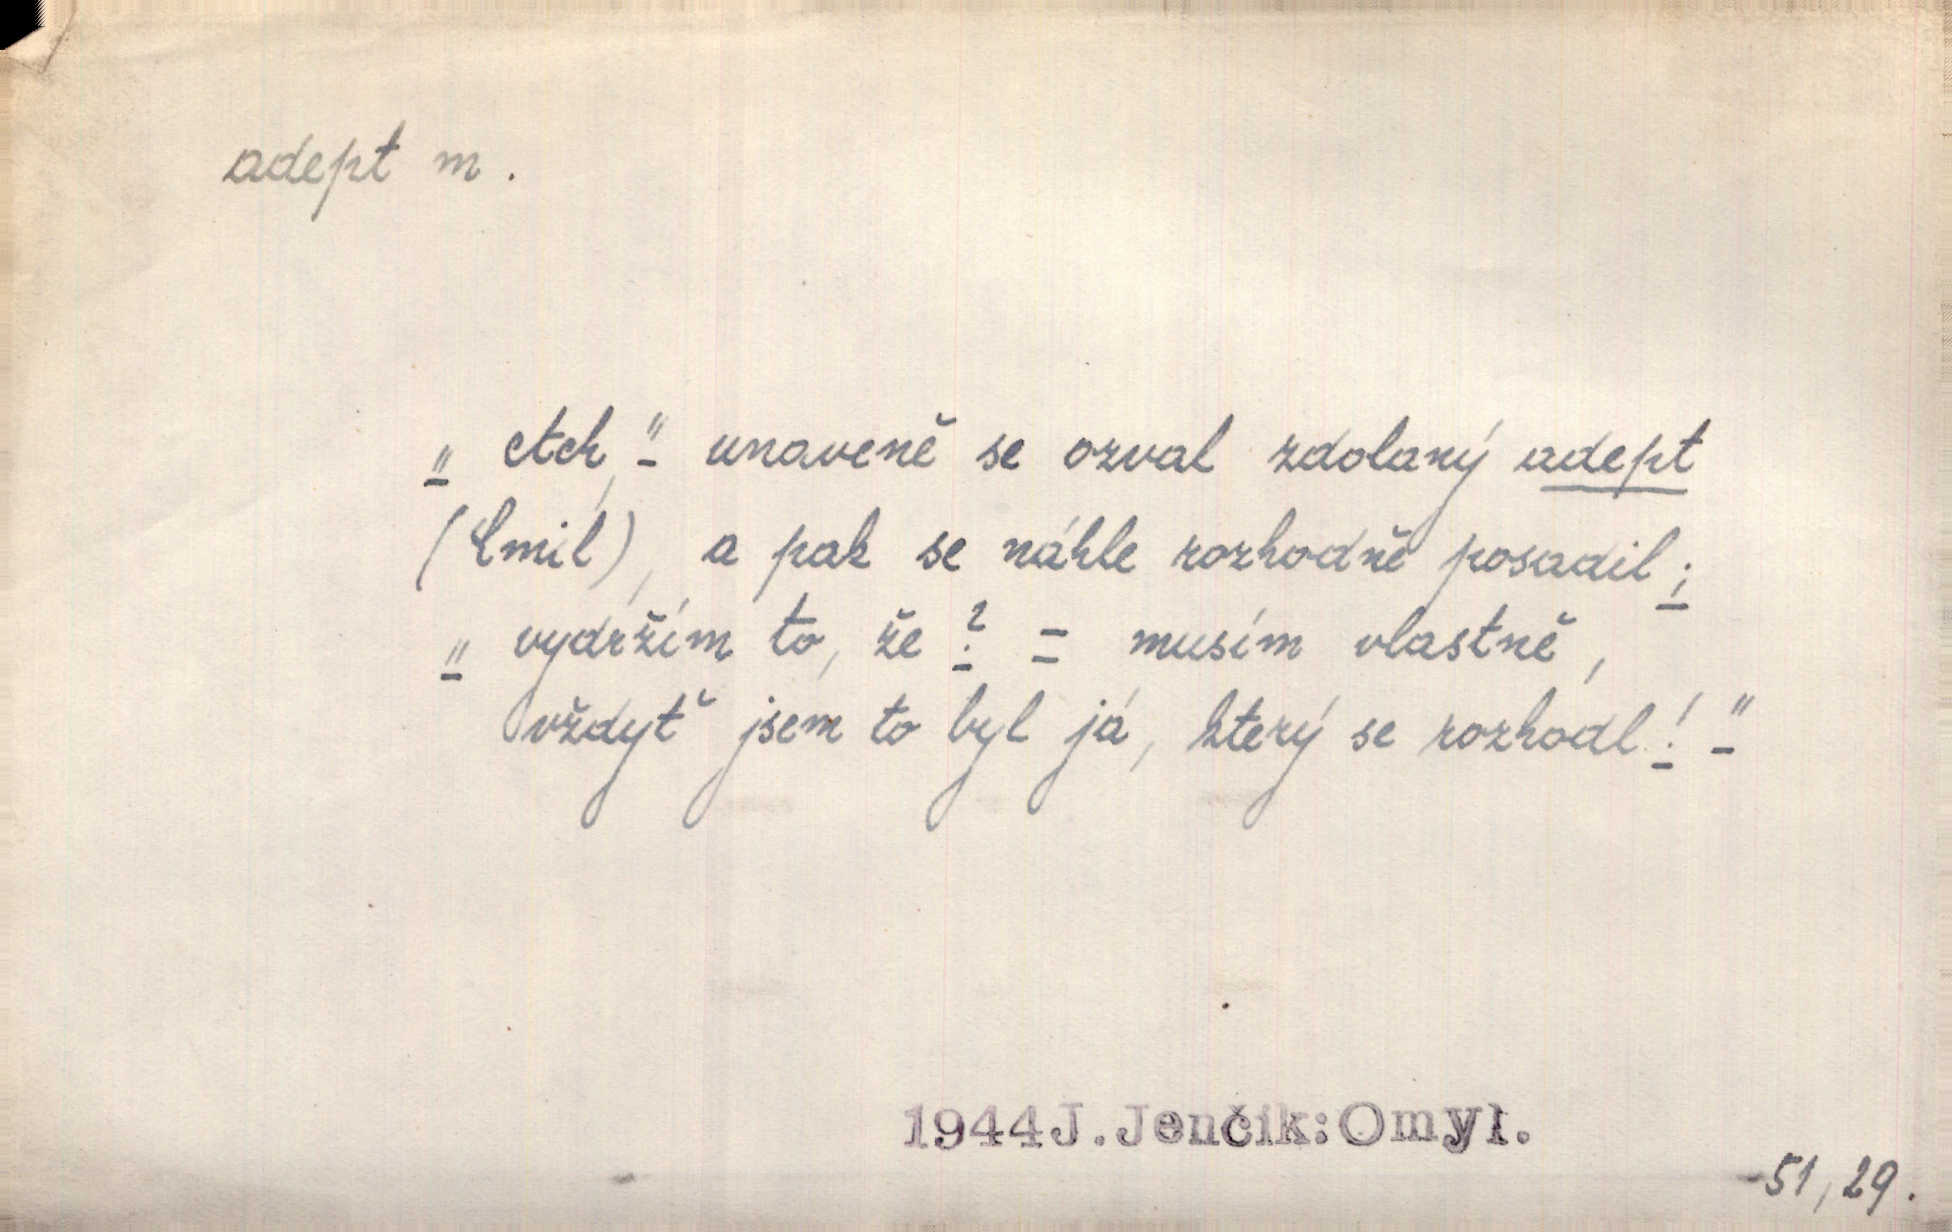 adept m.
„Ach," unaveně se ozval zdolaný adept
(Emil), a pak se náhle rozhodně posadil;
„vydržím to, že? = musím vlastně,
vždyť jsem to byl já, který se rozhodl!"
1944 J. Jenčík: Omyl.
51, 29.